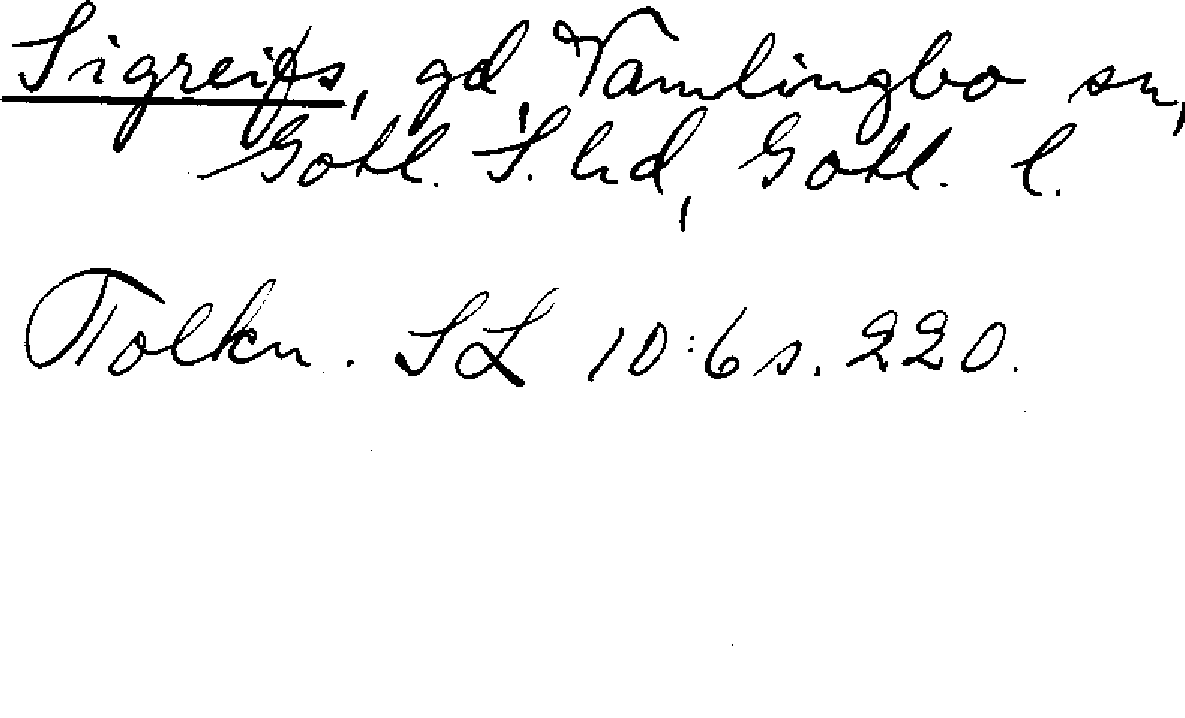 Sigreifs, gd, Vamlingbo sn,
Gotl. S. hd, Gotl. l.
Tolkn. SL 10:6 s. 220.